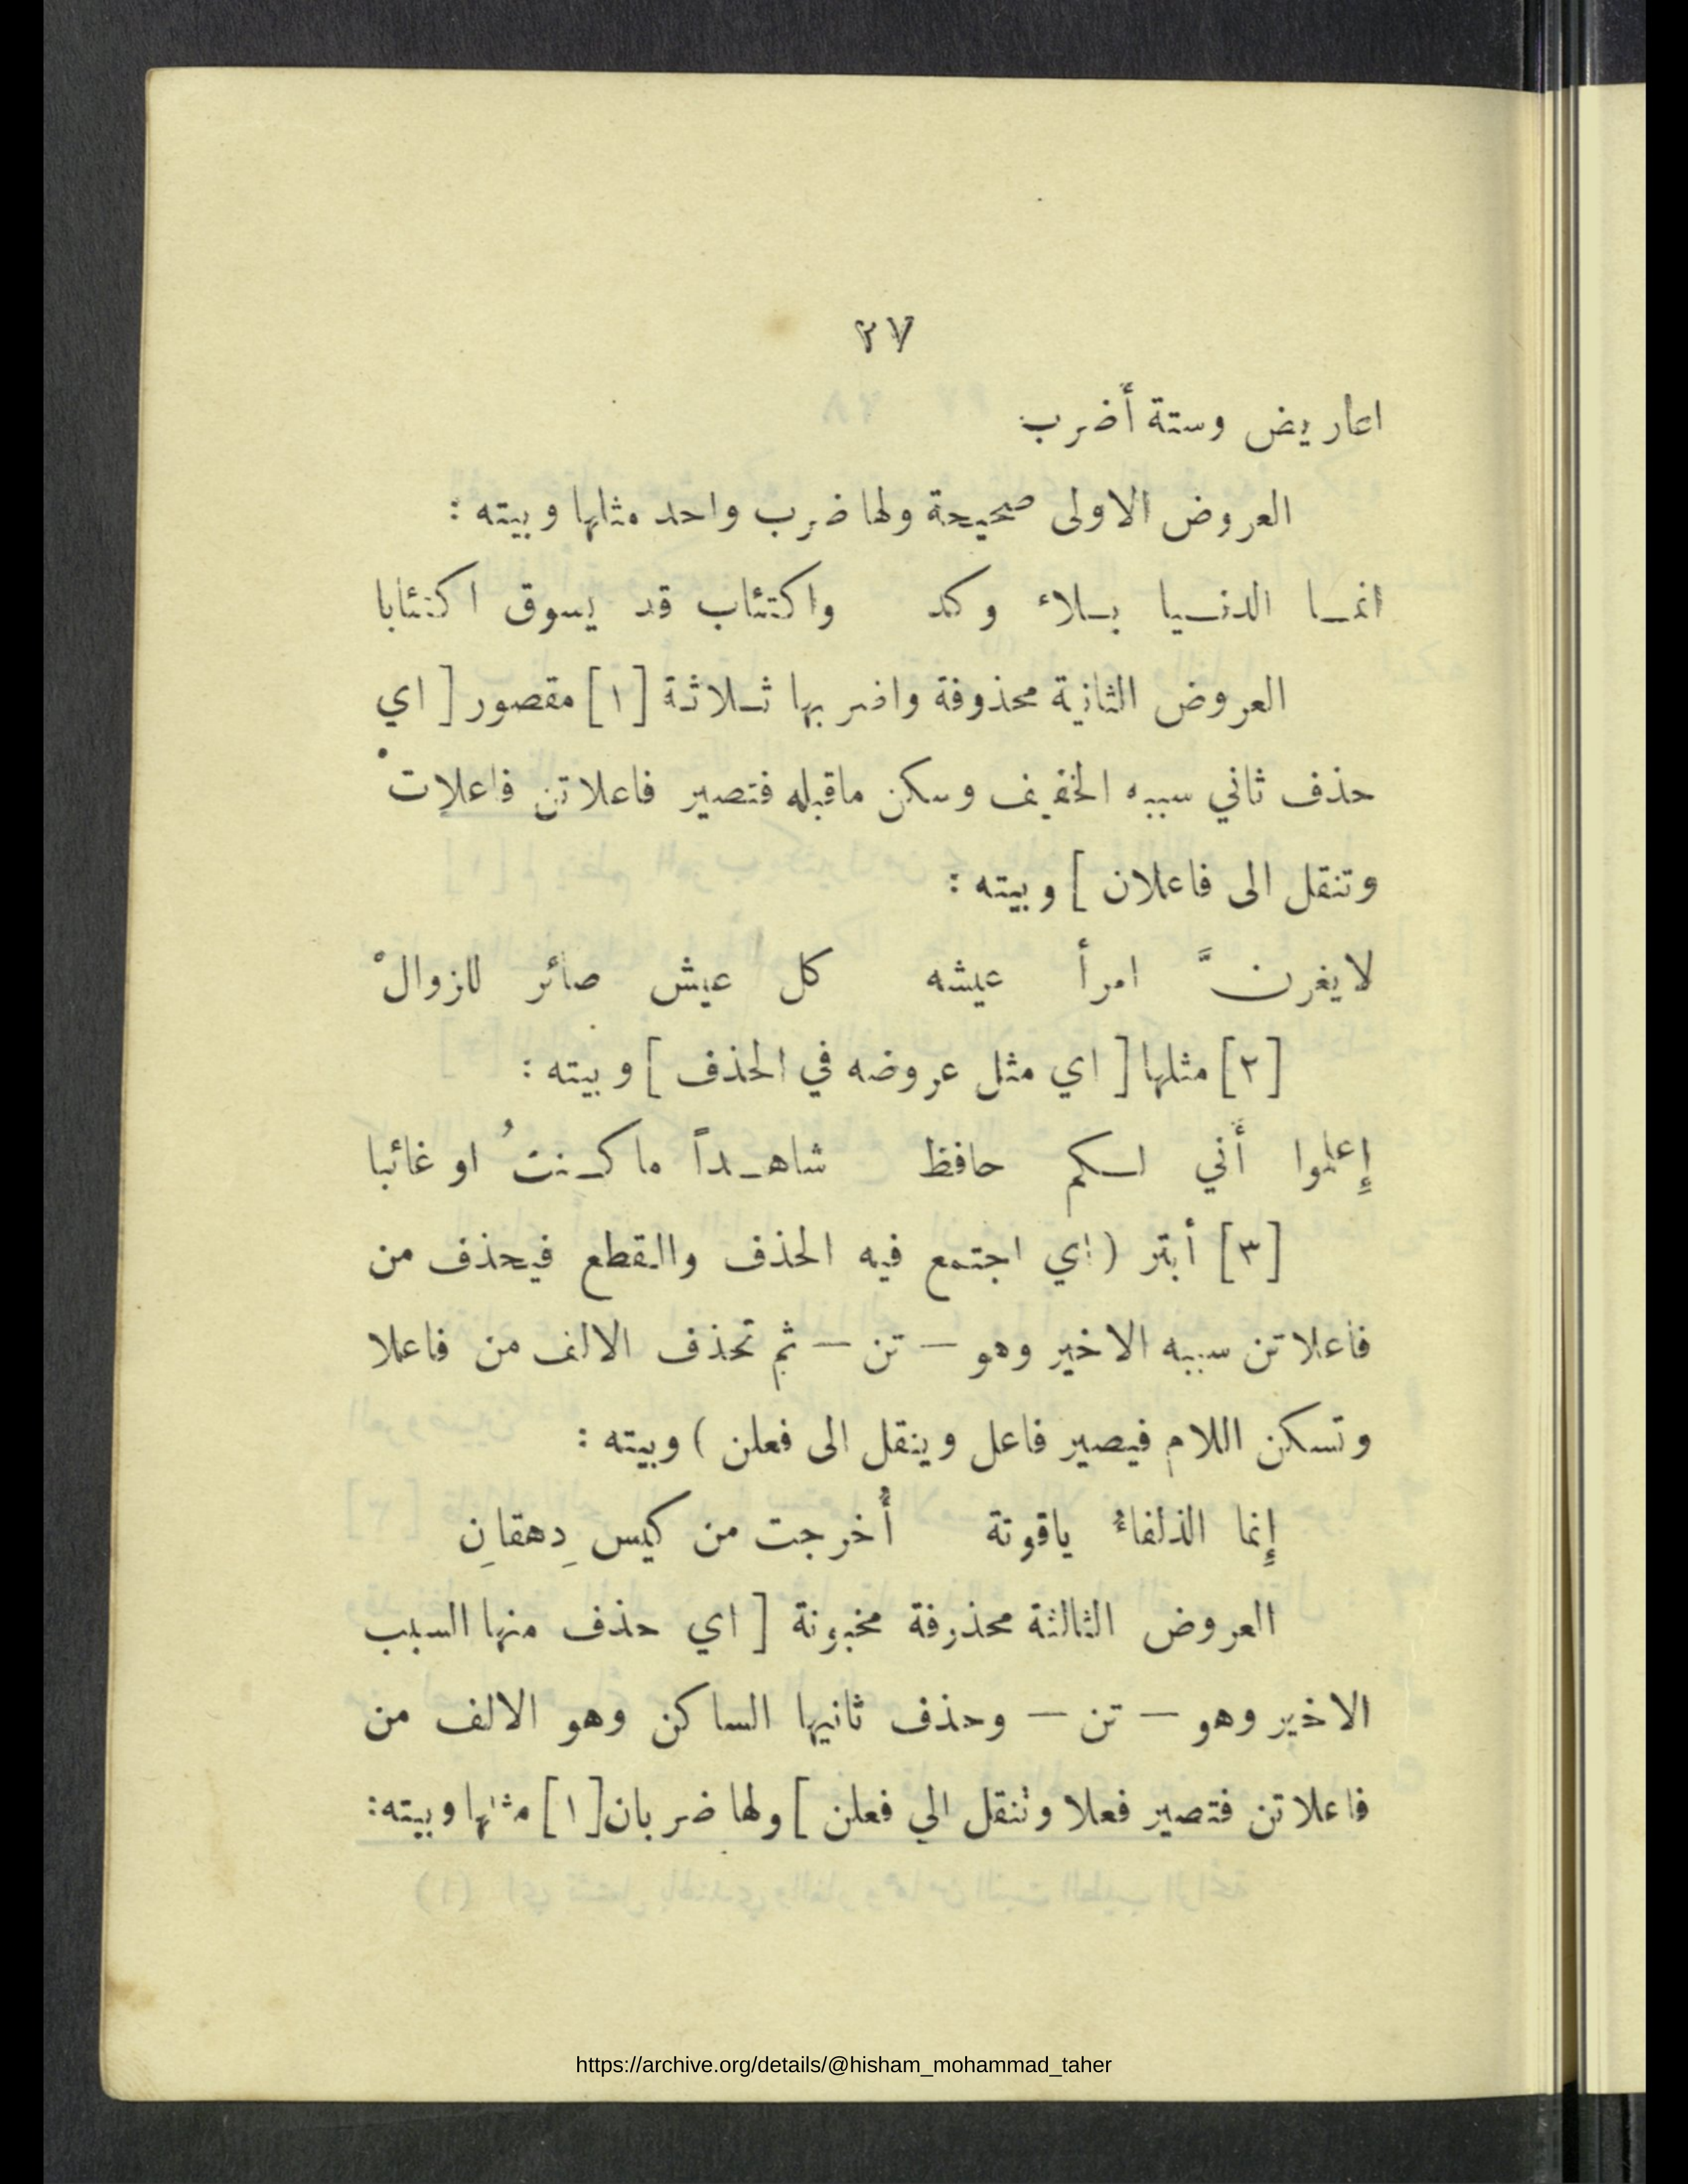 ٢٧
اعاريض وستة أضرب
العروض الاولى صحيحة ولها ضرب واحد مثلها وبيته :
انما الدنيا بلاء وكد واكتئاب قد يسوق اكتئابا
العروض الثانية محذوفة واضربها ثلاثة [١] مقصور [ اي
حذف ثاني سببه الخفيف وسكن ماقبله فتصير فاعلاتن فاعلاتْ
وتنقل الى فاعلان ] وبيته :
لايغرنَّ امرأ عيشه كل عيش صائر للزوالْ
[٢] مثلها [ اي مثل عروضه في الحذف ] وبيته :
إعلموا أني لكم حافظ شاهداً ما كنتُ او غائبا
[٣] أبتر ( اي اجتمع فيه الحذف والقطع فيحذف من
فاعلاتن سببه الاخير وهو — تن — ثم تحذف الالف من فاعلا
وتسكن اللام فيصير فاعل وينقل الى فعلن ) وبيته :
إنما الذلفاءُ ياقوتة أُخرجت من كيس دِهقانِ
العروض الثالثة محذرفة مخبونة [ اي حذف منها السبب
الاخير وهو — تن — وحذف ثانيها الساكن وهو الالف من
فاعلاتن فتصير فعلا وتنقل الي فعلن ] ولها ضربان [١] مثلها وبيته:
https://archive.org/details/@hisham_mohammad_taher